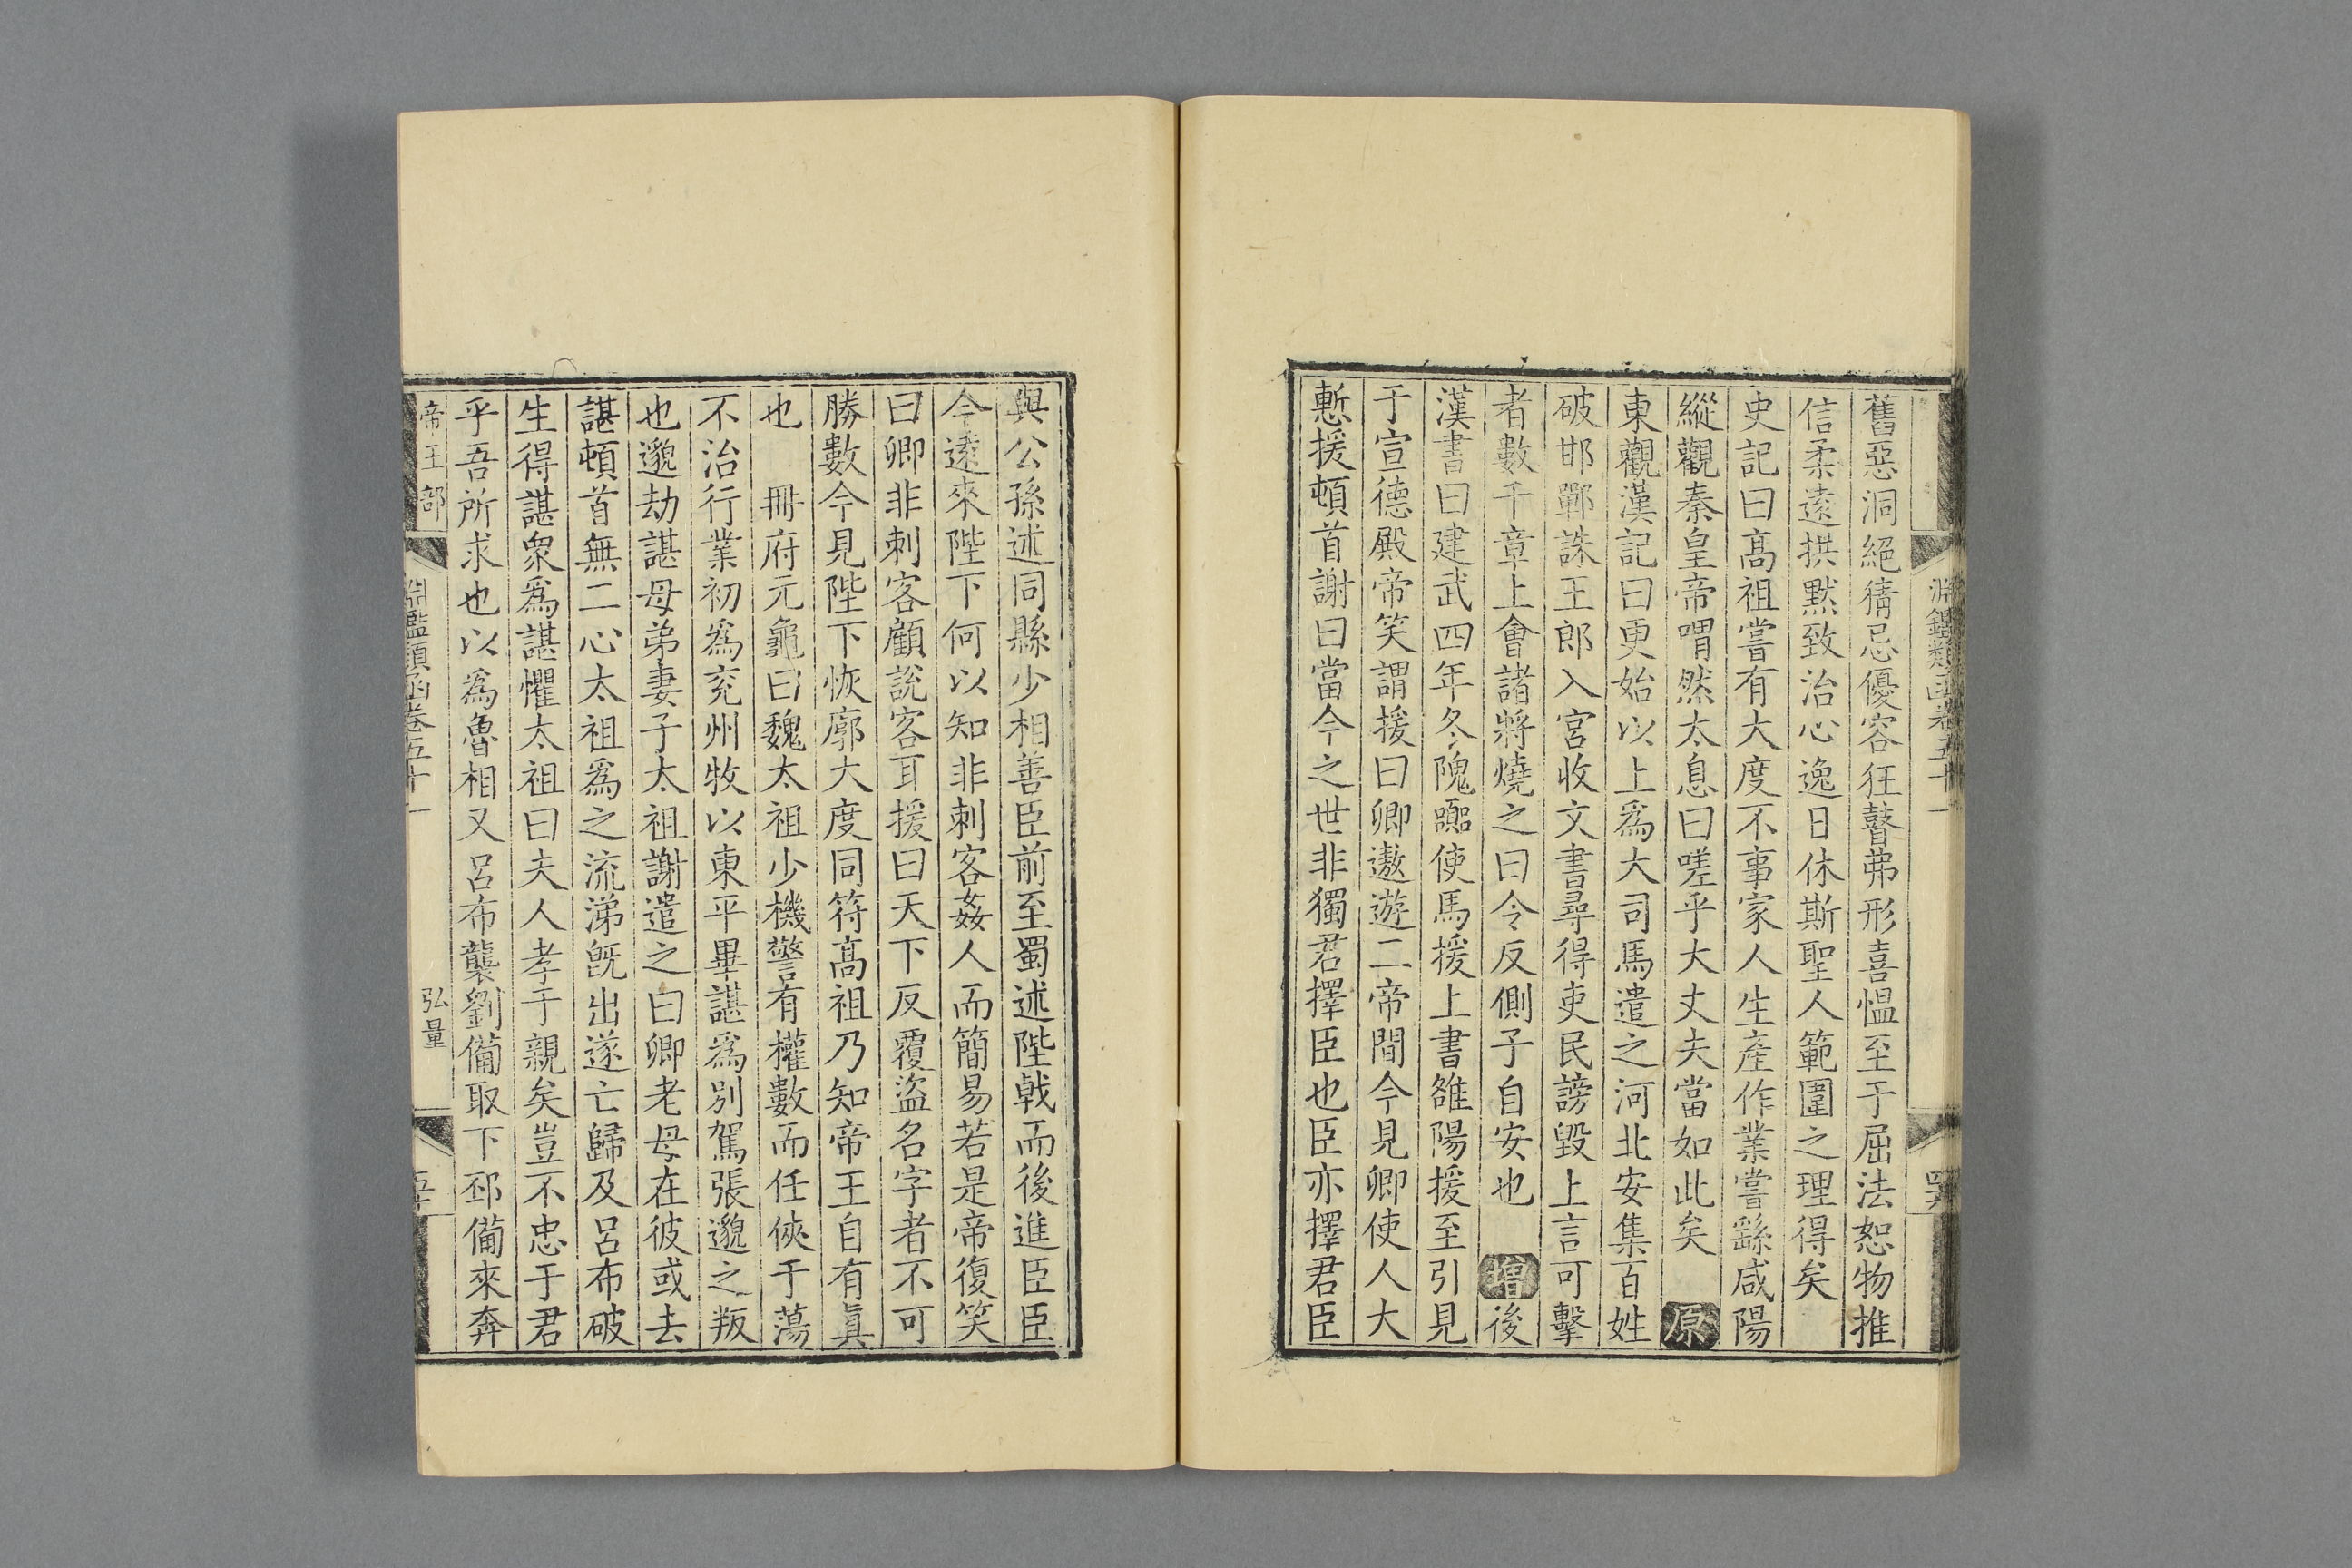 淵鑑類函卷五十一
舊惡洞絕猜忌優容狂瞽弗形喜慍至于屈法恕物推
信柔遠拱默致治心逸日休斯聖人範圍之理得矣
史記曰高祖嘗有大度不事家人生產作業嘗繇咸陽
縱觀秦皇帝喟然太息曰嗟乎大丈夫當如此矣 原
東觀漢記曰更始以上爲大司馬遣之河北安集百姓
破邯鄲誅王郎入宮收文書尋得吏民謗毀上言可擊
者數千章上會諸將燒之曰令反側子自安也 增後
漢書曰建武四年冬隗囂使馬援上書雒陽援至引見
于宣德殿帝笑謂援曰卿遨遊二帝間今見卿使人大
慙援頓首謝曰當今之世非獨君擇臣也臣亦擇君臣
與公孫述同縣少相善臣前至蜀述陛戟而後進臣臣
今遠來陛下何以知非刺客姦人而簡易若是帝復笑
曰卿非刺客顧說客耳援曰天下反覆盜名字者不可
勝數今見陛下恢廓大度同符高祖乃知帝王自有眞
也 冊府元龜曰魏太祖少機警有權數而任俠于蕩
不治行業初爲兖州牧以東平畢諶爲別駕張邈之叛
也邈劫諶母弟妻子太祖謝遣之曰卿老母在彼或去
諶頓首無二心太祖爲之流涕旣出遂亡歸及呂布破
生得諶衆爲諶懼太祖曰夫人孝于親矣豈不忠于君
乎吾所求也以爲魯相又呂布襲劉備取下邳備來奔
帝王部 淵鑑類函卷五十一 弘量